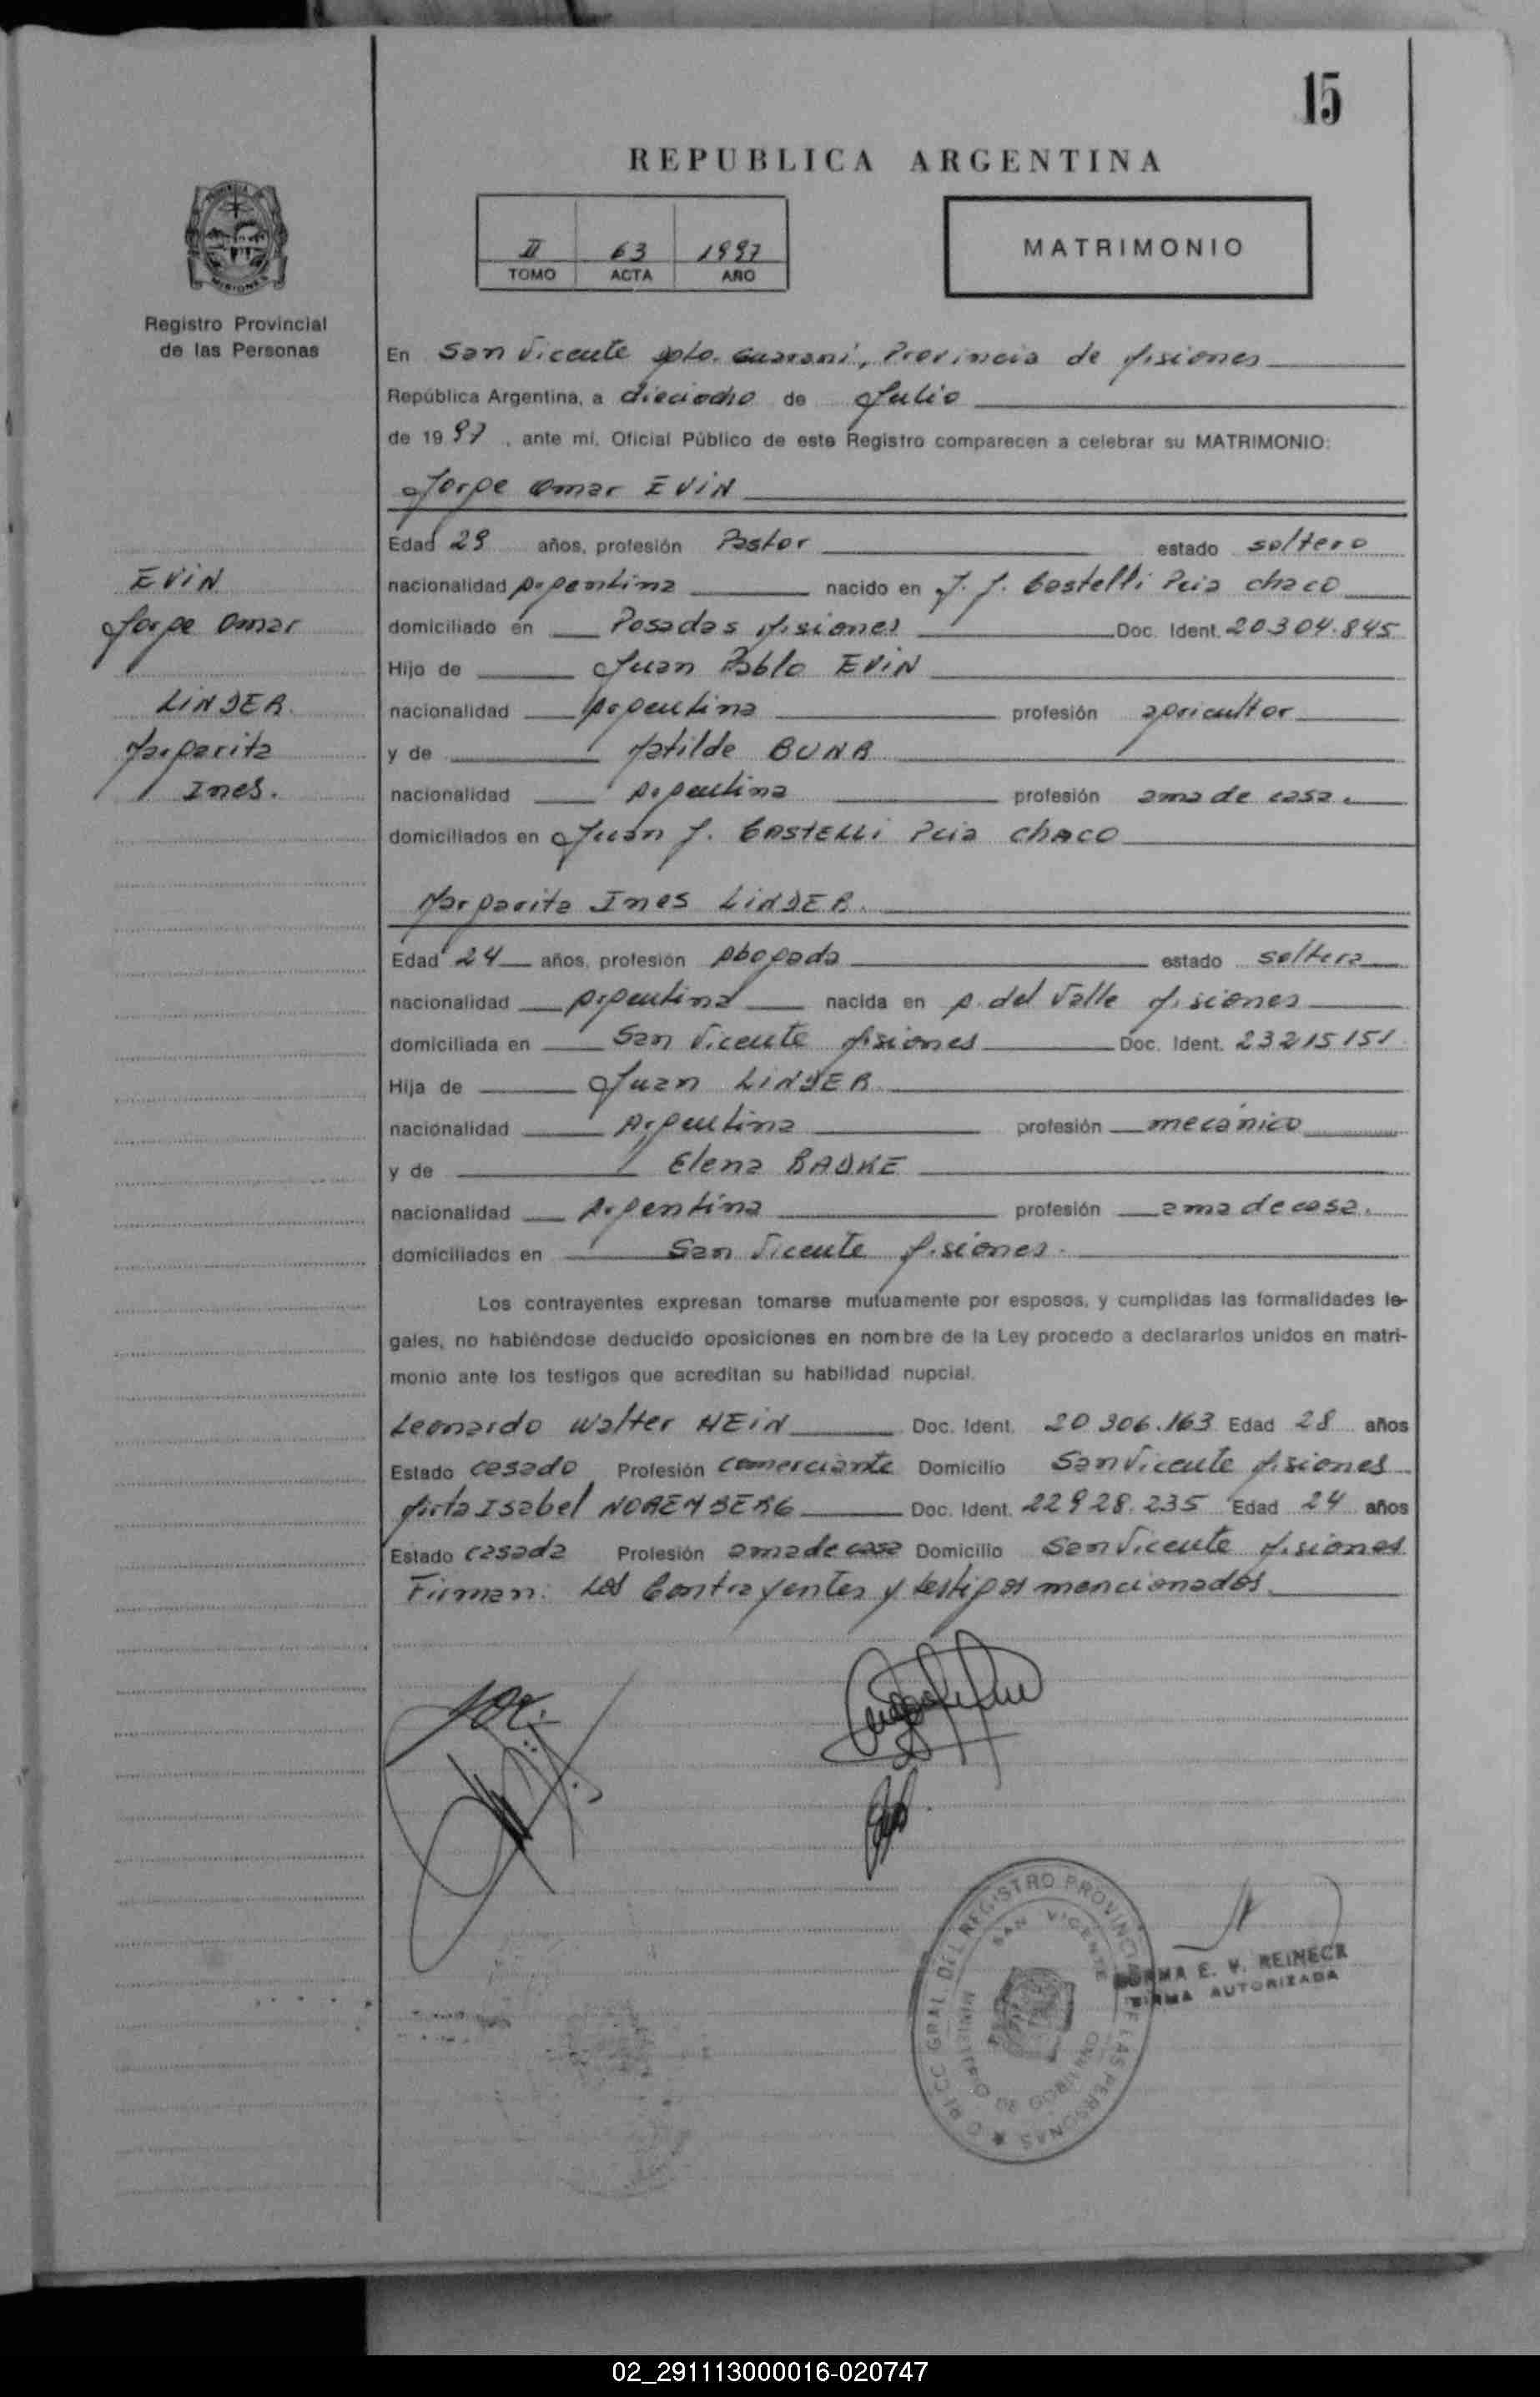 15
REPUBLICA ARGENTINA
II 63 1997
TOMO ACTA AÑO
MATRIMONIO
Registro Provincial
de las Personas
En San Vicente Dpto. Guaraní, Provincia de Misiones
República Argentina, a dieciocho de Julio
de 1997, ante mi, Oficial Público de este Registro comparecen a celebrar su MATRIMONIO:
Jorge Omar EVIN
Edad 29 años, profesión Pastor estado soltero
EVIN
nacionalidad Argentina nacido en J. J. Castelli Pcia Chaco
Jorge Omar
domiciliado en Posadas Misiones Doc. Ident. 20.304.845
Hijo de Juan Pablo EVIN
LINDER
nacionalidad Argentina profesión agricultor
Margarita
y de Matilde
Ines.
nacionalidad Argentina profesión ama de casa.
domiciliados en Juan J. CASTELLI Pcia CHACO
Margarita Ines LINDER.
Edad 24 años, profesión Abogada estado soltera
nacionalidad Argentina nacida en A. del Valle Misiones
domiciliada en San Vicente Misiones Doc. Ident. 23215151
Hija de Juan LINDER
nacionalidad Argentina profesión mecánico
y de Elena RADKE
nacionalidad Argentina profesión ama de casa.
domiciliados en San Vicente Misiones.
Los contrayentes expresan tomarse mutuamente por esposos, y cumplidas las formalidades le-
gales, no habiéndose deducido oposiciones en nombre de la Ley procedo a declararlos unidos en matri-
monio ante los testigos que acreditan su habilidad nupcial.
Leonardo Walter HEIN Doc. Ident. 20.306.163 Edad 28 años
Estado casado Profesión comerciante Domicilio San Vicente Misiones
Mirta Isabel NOREMBERG Doc. Ident. 22928.235 Edad 24 años
Estado casada Profesión ama de casa Domicilio San Vicente Misiones
Firman: Los Contrayentes y testigos mencionados.
GRAL DEL REGISTRO PROVINCIAL DE LAS PERSONAS
SAN VICENTE
MINISTERIO DE GOBIERNO
NORMA E. V. REINECK
FIRMA AUTORIZADA
02_291113000016-020747